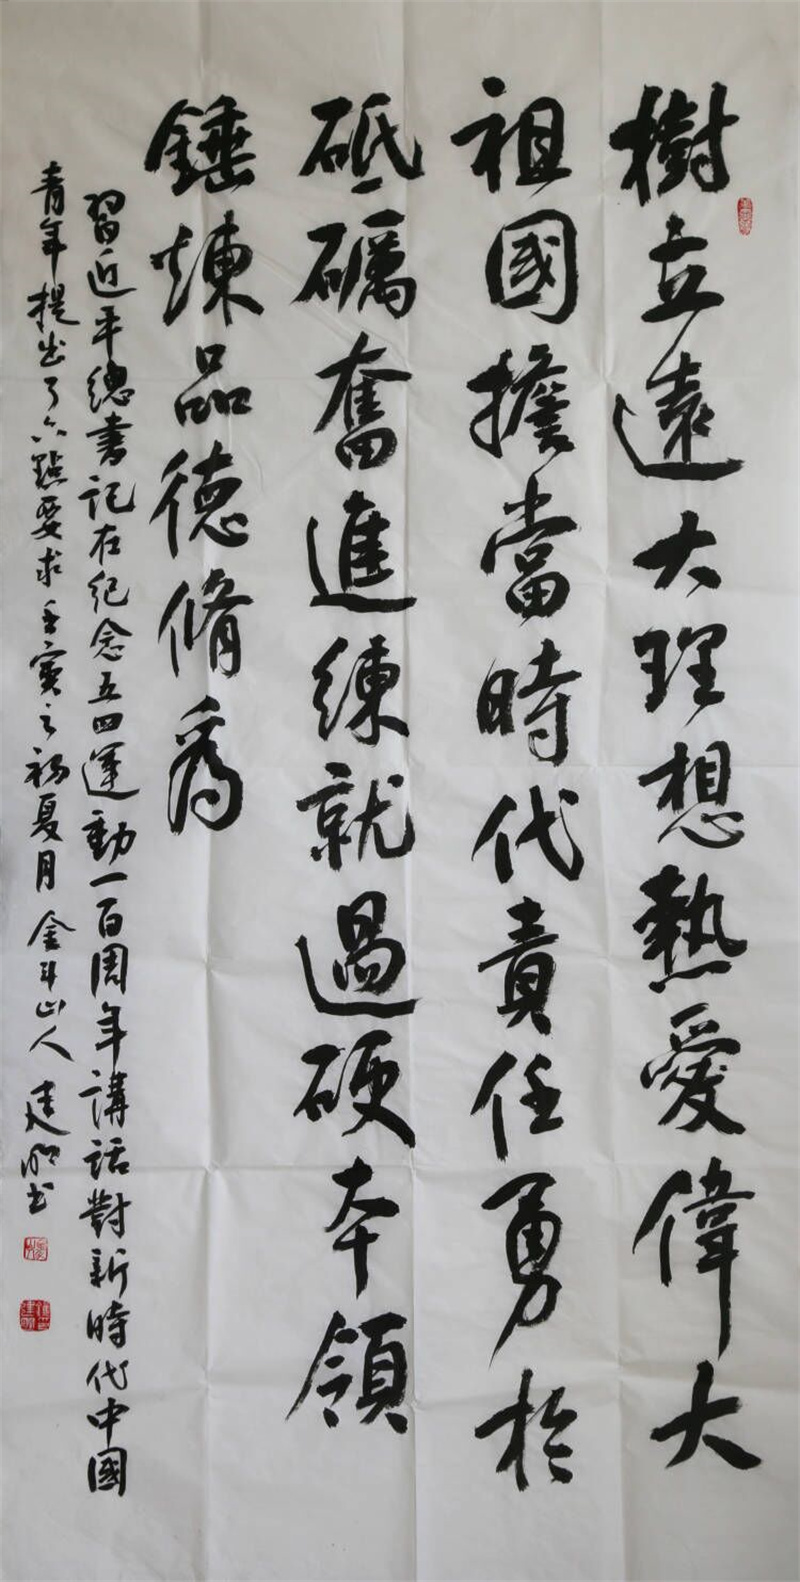 樹立遠大理想熱愛偉大
祖國擔當時代責任勇於
砥礪奮進練就過硬本領
錘煉品德脩為
習近平總書記在紀念五四運動一百周年講話對新時代中國
青年提出了六點要求壬寅之初夏月金斗山人建明書